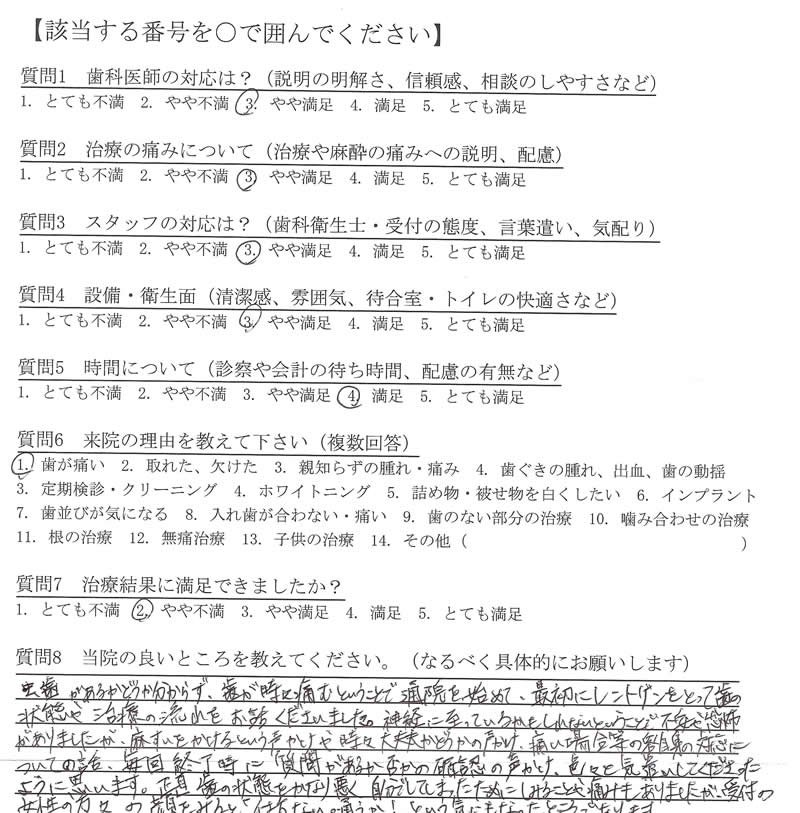 【該当する番号を○で囲んでください】
質問1 歯科医師の対応は？（説明の明解さ、信頼感、相談のしやすさなど）
1. とても不満 2. やや不満 3. やや満足 4. 満足 5. とても満足
質問2 治療の痛みについて（治療や麻酔の痛みへの説明、配慮）
1. とても不満 2. やや不満 3 やや満足 4. 満足 5. とても満足
質問3 スタッフの対応は？（歯科衛生士・受付の態度、言葉遣い、気配り）
1. とても不満 2. やや不満 3. やや満足 4. 満足 5. とても満足
質問4 設備・衛生面（清潔感、雰囲気、待合室・トイレの快適さなど）
1. とても不満 2. やや不満 3. やや満足 4. 満足 5. とても満足
質問5 時間について（診察や会計の待ち時間、配慮の有無など）
1. とても不満 2. やや不満 3. やや満足 4. 満足 5. とても満足
質問6 来院の理由を教えて下さい（複数回答）
1. 歯が痛い 2. 取れた、欠けた 3. 親知らずの腫れ・痛み 4. 歯ぐきの腫れ、出血、歯の動揺
3. 定期検診・クリーニング 4. ホワイトニング 5. 詰め物・被せ物を白くしたい 6. インプラント
7. 歯並びが気になる 8. 入れ歯が合わない・痛い 9. 歯のない部分の治療 10. 噛み合わせの治療
11. 根の治療 12. 無痛治療 13. 子供の治療 14. その他（ ）
質問7 治療結果に満足できましたか？
1. とても不満 2. やや不満 3. やや満足 4. 満足 5. とても満足
質問8 当院の良いところを教えてください。（なるべく具体的にお願いします）
虫歯があるかどうか分からず、歯が時々痛むということで通院を始めて、最初にレントゲンをとって歯の
状態や治療の流れをお話くださいました。神経に至っているかもしれないということで不安や恐怖
がありましたが、麻すいをかけるという声かけや時々大丈夫かどうかの声かけ、痛い場合等の対応に
ついての話、毎回終了時に質問があるか否かの確認の声かけ、色々と気遣いしてくださった
ように思います。正直歯の状態をかなり悪く自分でしてしまったためにしみることや痛みもありましたが、受付の
女性の方々の顔をみると という気にもなったところであります